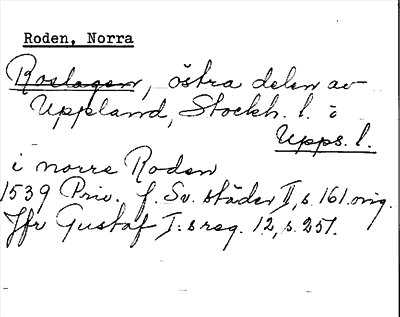 Roden, Norra
Roslagen, östra delen av
Uppland, Stockh. l. o
Upps. l.
i norre Roden
1539 Priv. f. Sv. städer II, s. 161. orig.
Jfr Gustaf I:s reg. 12, s. 251.